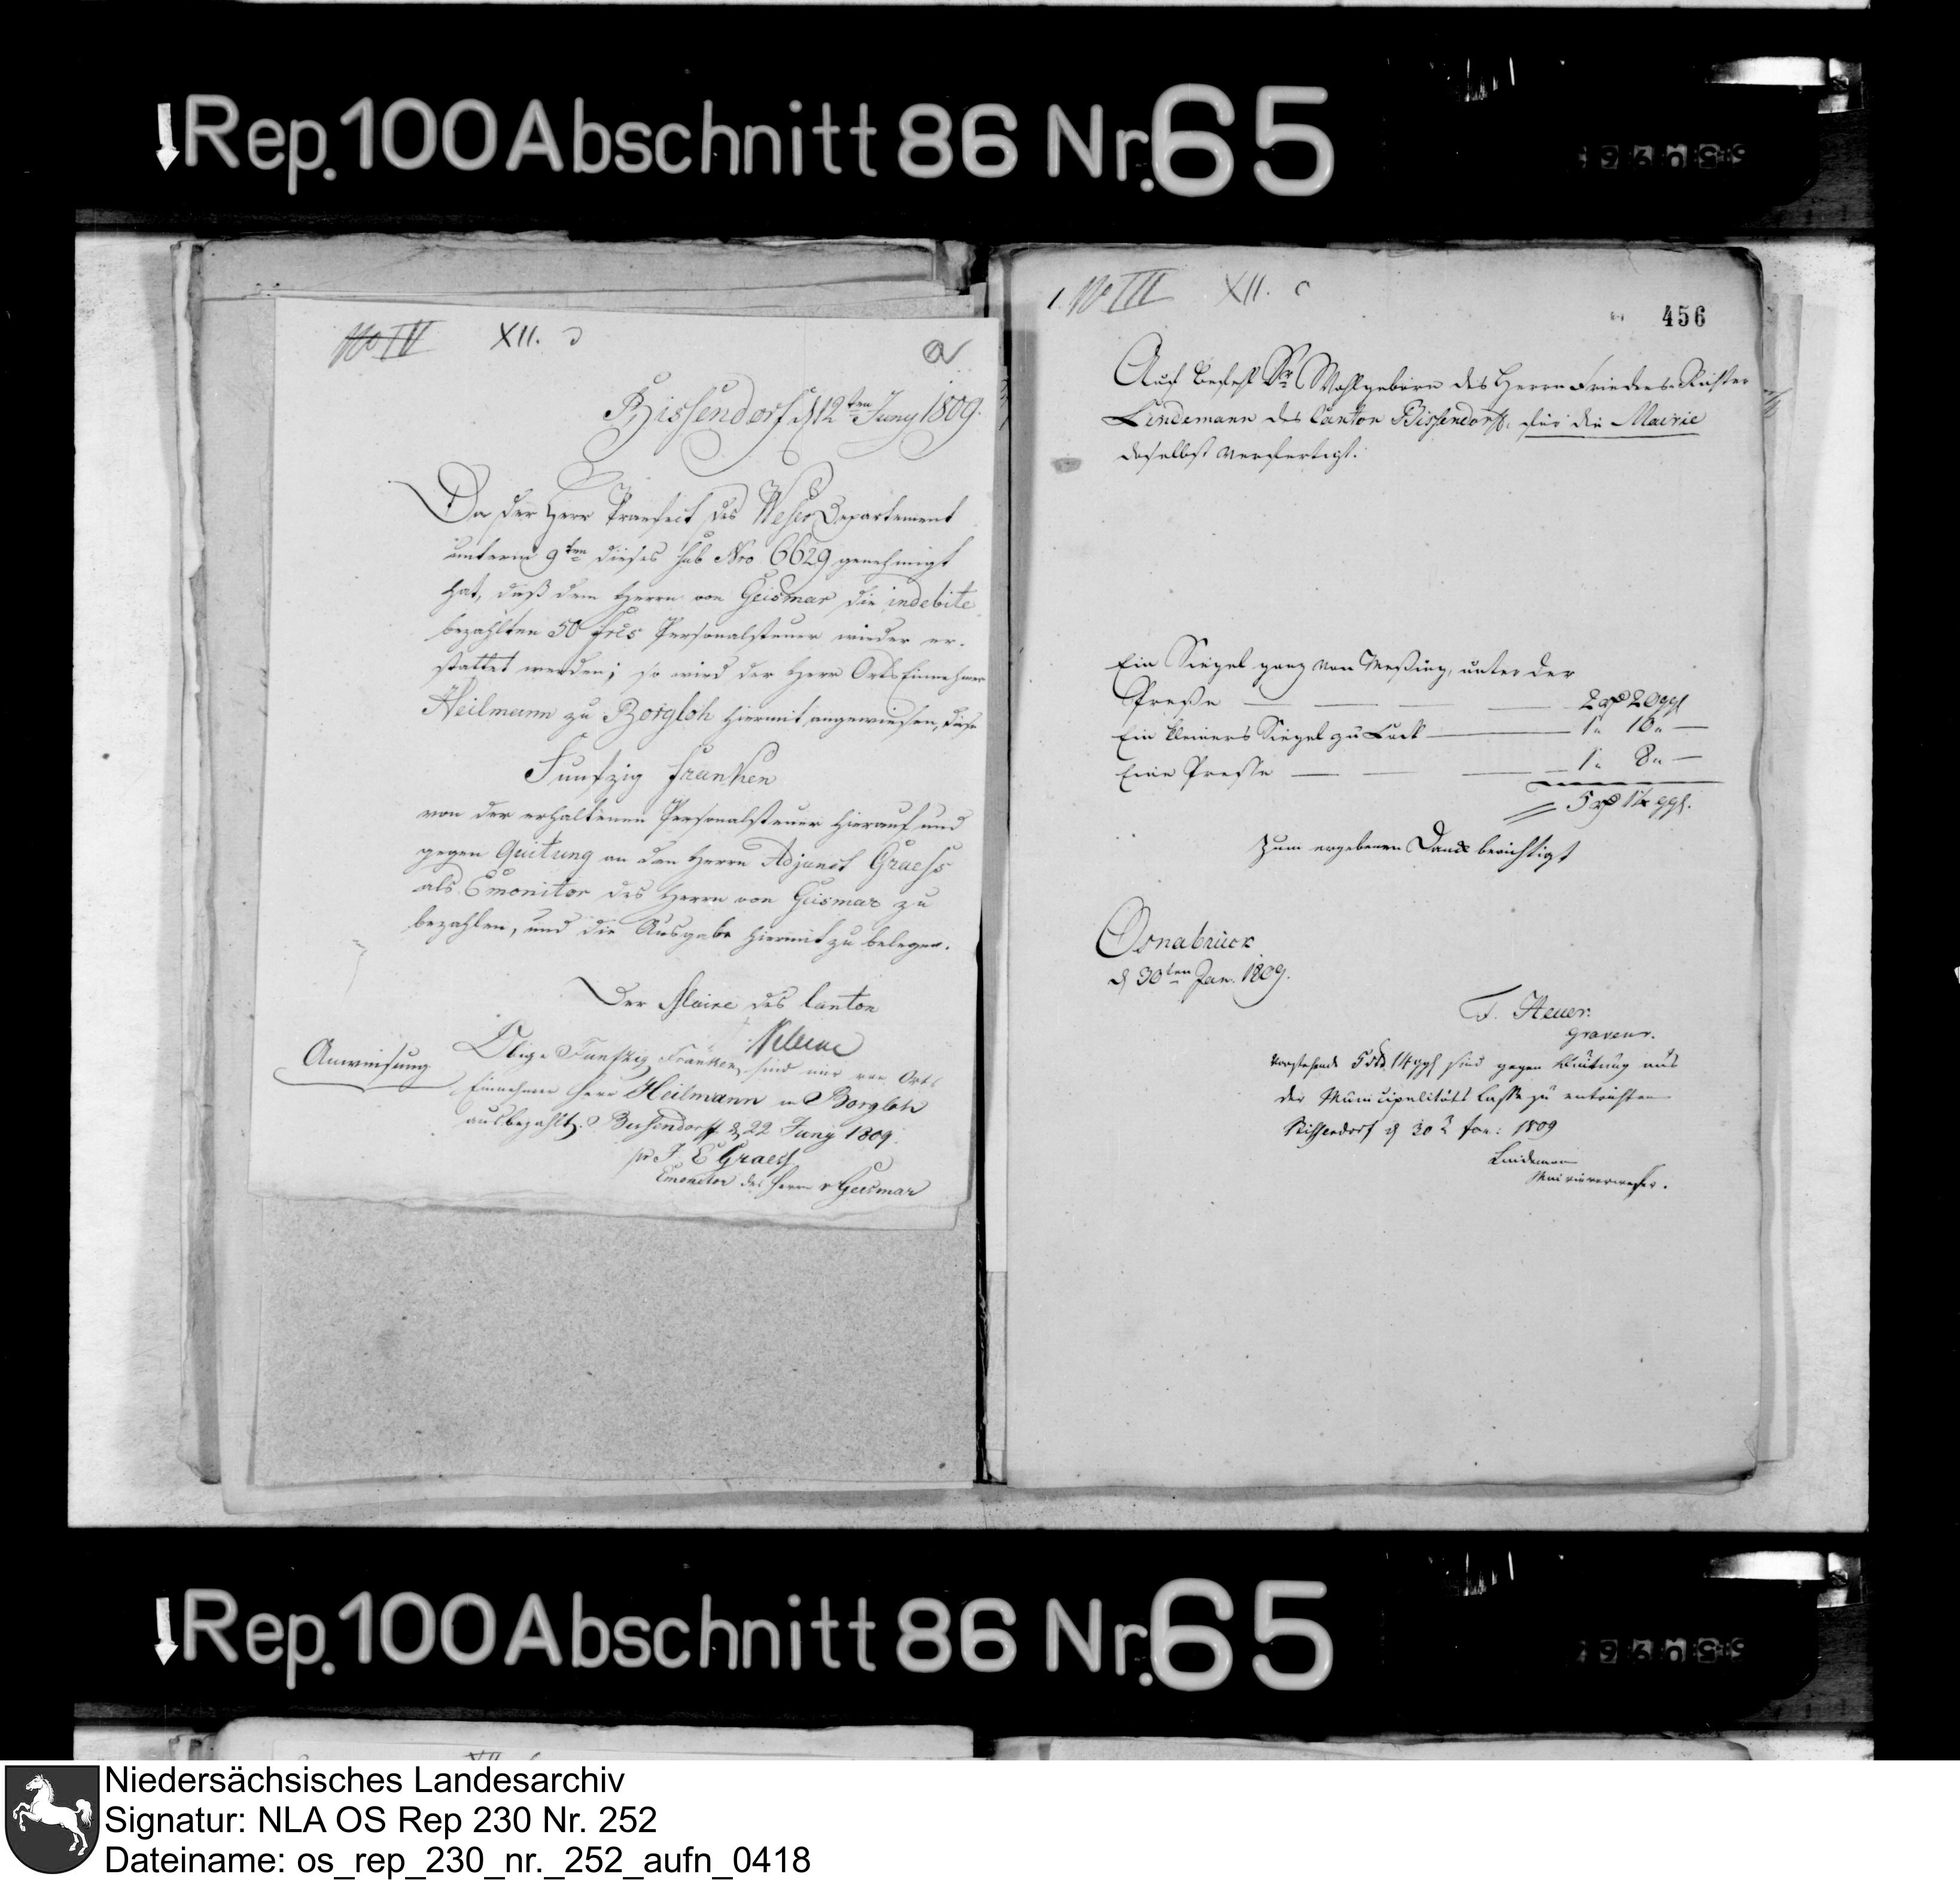 Rep. 100 Abschnitt 86 Nr. 65
No IV XII. d
a
Bissendorf d 12ten Juny 1809.
Da der Herr Praefect des Weser Departement
unterm 9ten dieses sub Nro 6629 genehmigt
hat, daß dem Herrn von Geismar die indebite
bezahlten 50 frcs Personalsteuer wieder er-
stattet werden; so wird der Herr Orts Einnehmer
Heilmann zu Borgloh hiermit angewiesen, diese
Funfzig Franken
von der erhaltenen Personalsteuer hierauf und
gegen Quitung an den Herrn Adjunct Graess
als Emonitor des Herrn von Geismar zu
bezahlen, und die Ausgabe hiermit zu belegen.
Der Maire des Canton
Anweisung
Obige Funfzig Franken sind mir von Orts
Einnehmer Herr Heilmann in Borgloh
ausbezahlt. Bissendorff d 22 Juny 1809.
J. E Graess
Emonitor des Herrn v Geismar
1. No III XII. c
456
Auf Befehl Sr Wohlgeborn des Herrn Friedens-Richter
Lindemann des Canton Bissendorff. für die Mairie
daselbst verfertigt.
Ein Siegel ganz von Meßing, unter der
Preße — — — — 2 rthlr 20 ggl
Ein kleiners Siegel zu Lack — 1 „ 10 „ —
Eine Presse — — — 1 „ 8 „ —
5 rthlr 14 ggl.
Zum ergebenen Danck berichtigt
Osnabrück
d 30ten Jan. 1809.
F. Heuer.
Graveur.
Vorstehende 5 rtlr. 14 ggl sind gegen Quitung aus
der Municipalitäts Casse zu entrichten
Bissendorf d 30t Jan: 1809
Lindemann
Mairieverweser.
Rep. 100 Abschnitt 86 Nr. 65
Niedersächsisches Landesarchiv
Signatur: NLA OS Rep 230 Nr. 252
Dateiname: os_rep_230_nr._252_aufn_0418